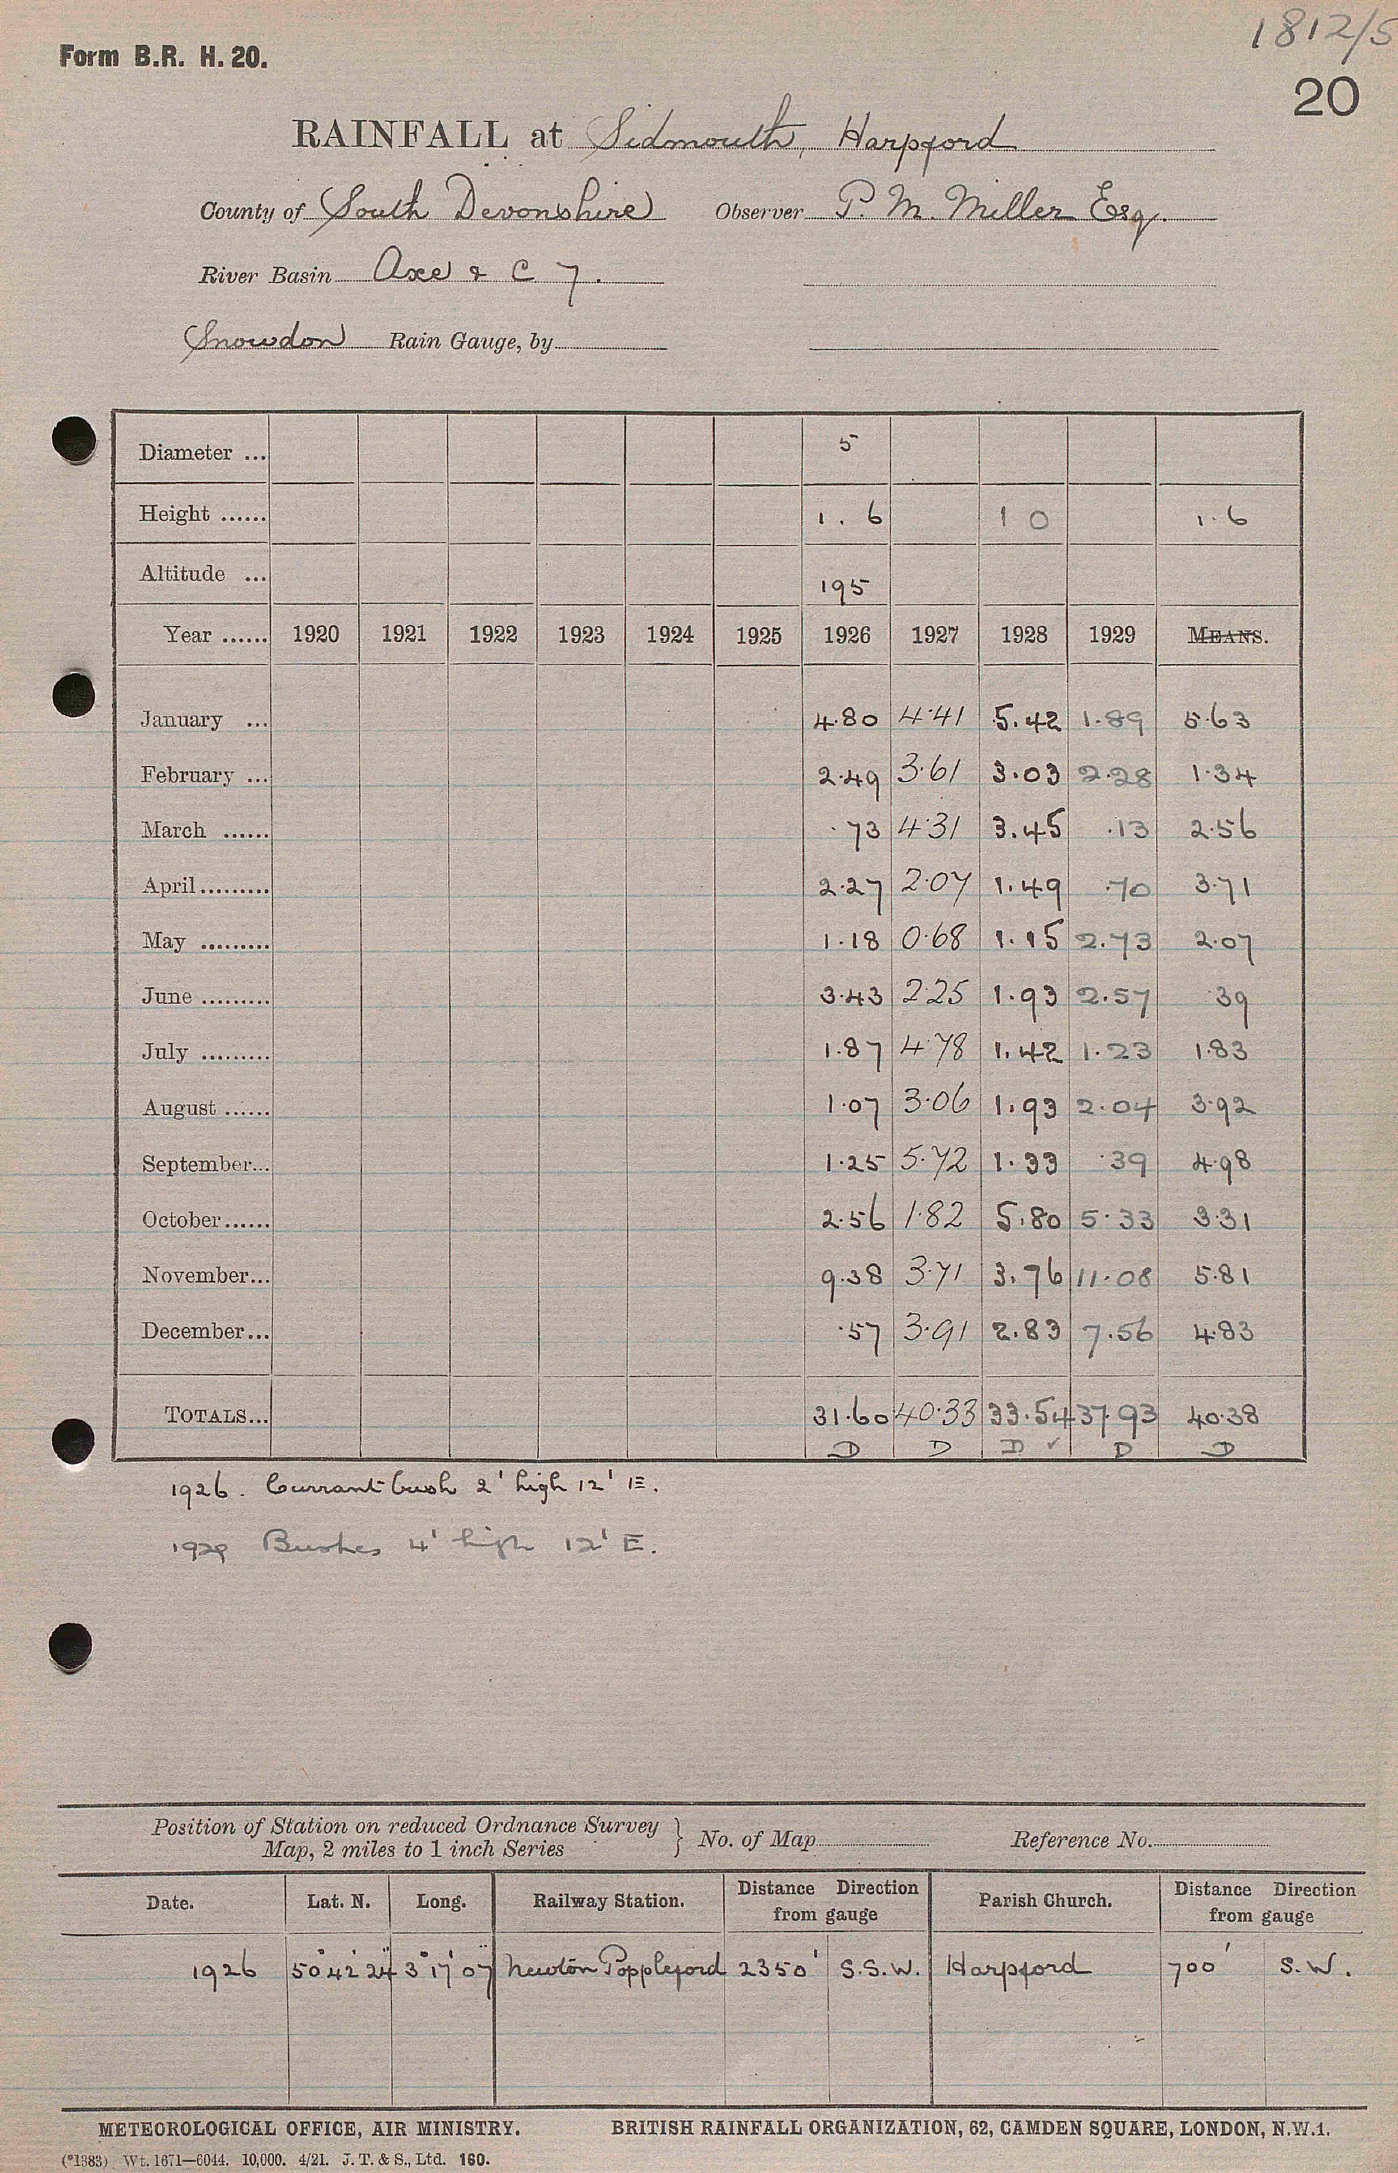 1812/5
Form B.R. H. 20.
20
RAINFALL at Sidmouth, Harpford
County of South Devonshire Observer P. M. Miller Esq.
River Basin Axe & C 7.
Snowdon Rain Gauge, by
Diameter ... 5
Height ...... 1. 6 1 0 1. 6
Altitude ... 195
Year ...... 1920 1921 1922 1923 1924 1925 1926 1927 1928 1929 MEANS.
January ... 4.80 4.41 5.42 1.89 5.63
February ... 2.49 3.61 3.03 2.28 1.34
March ...... .73 4.31 3.45 .13 2.56
April......... 2.27 2.07 1.49 .70 3.71
May ......... 1.18 0.68 1.15 2.73 2.07
June ......... 3.43 2.25 1.93 2.57 .39
July ......... 1.87 4.78 1.42 1.23 1.83
August ...... 1.07 3.06 1.93 2.04 3.92
September... 1.25 5.72 1.33 .39 4.98
October...... 2.56 1.82 5.80 5.33 3.31
November... 9.38 3.71 3.76 11.08 5.81
December... .57 3.91 2.83 7.56 4.83
TOTALS... 31.60 40.33 33.54 37.93 40.38
D D D ✓ D D
1926. Currant bush 2' high 12' E.
1929 Bushes 4' high 12' E.
Position of Station on reduced Ordnance Survey
Map, 2 miles to 1 inch Series } No. of Map Reference No.
Date. Lat. N. Long. Railway Station. Distance Direction from gauge Parish Church. Distance Direction from gauge
1926 50° 42' 24" 3° 17' 07" Newton Poppleford 2350' S.S.W. Harpford 700' S.W.
METEOROLOGICAL OFFICE, AIR MINISTRY. BRITISH RAINFALL ORGANIZATION, 62, CAMDEN SQUARE, LONDON, N.W.1.
(*1383) Wt. 1671—6044. 10,000. 4/21. J. T. & S., Ltd. 160.